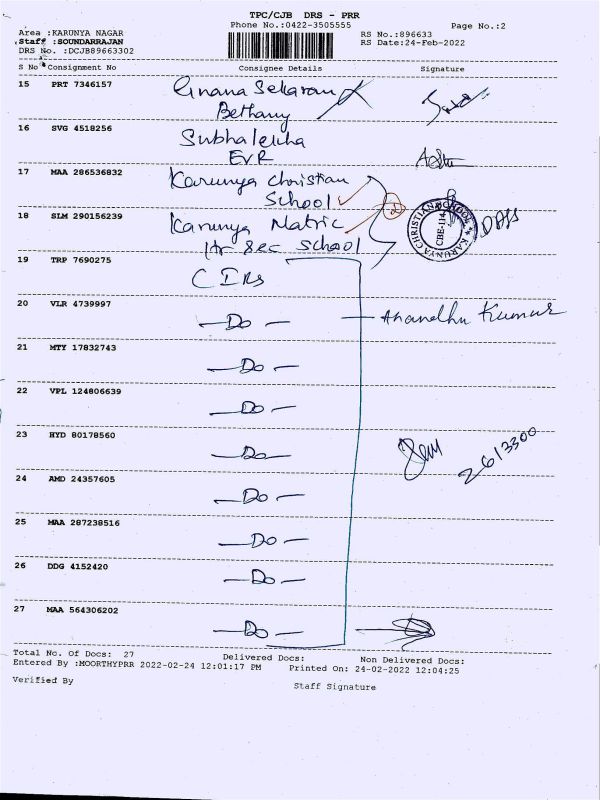 TPC/CJB DRS - PRR
Phone No.:0422-3505555
Page No.:2
Area :KARUNYA NAGAR
RS No.:896633
Staff :SOUNDARRAJAN
RS Date:24-Feb-2022
DRS No. :DCJB89663302
S No Consignment No Consignee Details Signature
15 PRT 7346157 Gnana Sekaran
Bethany
16 SVG 4518256 Subhalekha
EVR
17 MAA 286536832 Karunya Christian
School
18 SLM 290156239 Karunya Matric
Hr Sec School
KARUNYA CHRISTIAN SCHOOL
CBE-114
19 TRP 7690275
C I Rs
20 VLR 4739997
-Do- Anandhu Kumar
21 MTY 17832743
-Do-
22 VPL 124806639
-Do-
23 HYD 80178560
-Do- 2613300
24 AMD 24357605
-Do-
25 MAA 287238516
-Do-
26 DDG 4152420
-Do-
27 MAA 564306202
-Do-
Total No. Of Docs: 27 Delivered Docs: Non Delivered Docs:
Entered By :MOORTHYPRR 2022-02-24 12:01:17 PM Printed On: 24-02-2022 12:04:25
Verified By Staff Signature